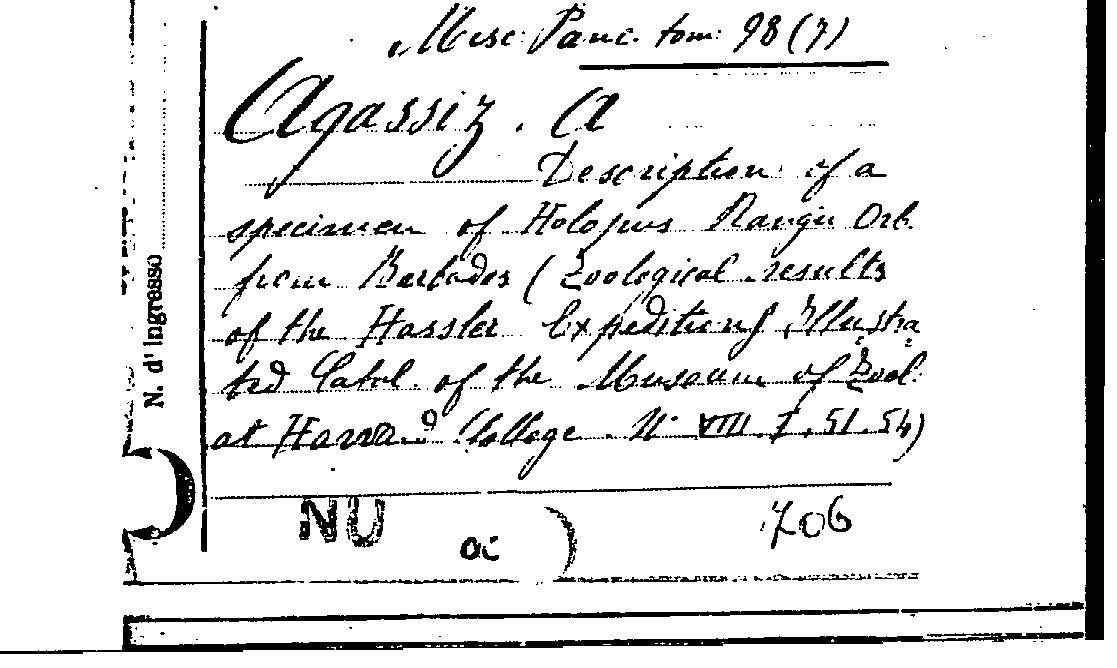 Misc Panc. tom. 98 (7)
Agassiz. A
Description of a
specimen of Holopus Rangii Orb.
from Barbados (Zoological results
of the Hassler Expedition) Illustra
ted Catal. of the Museum of Zool.
at Harvard College. N. VIII. I. 51. 54)
N. d'Ingresso
NU
706